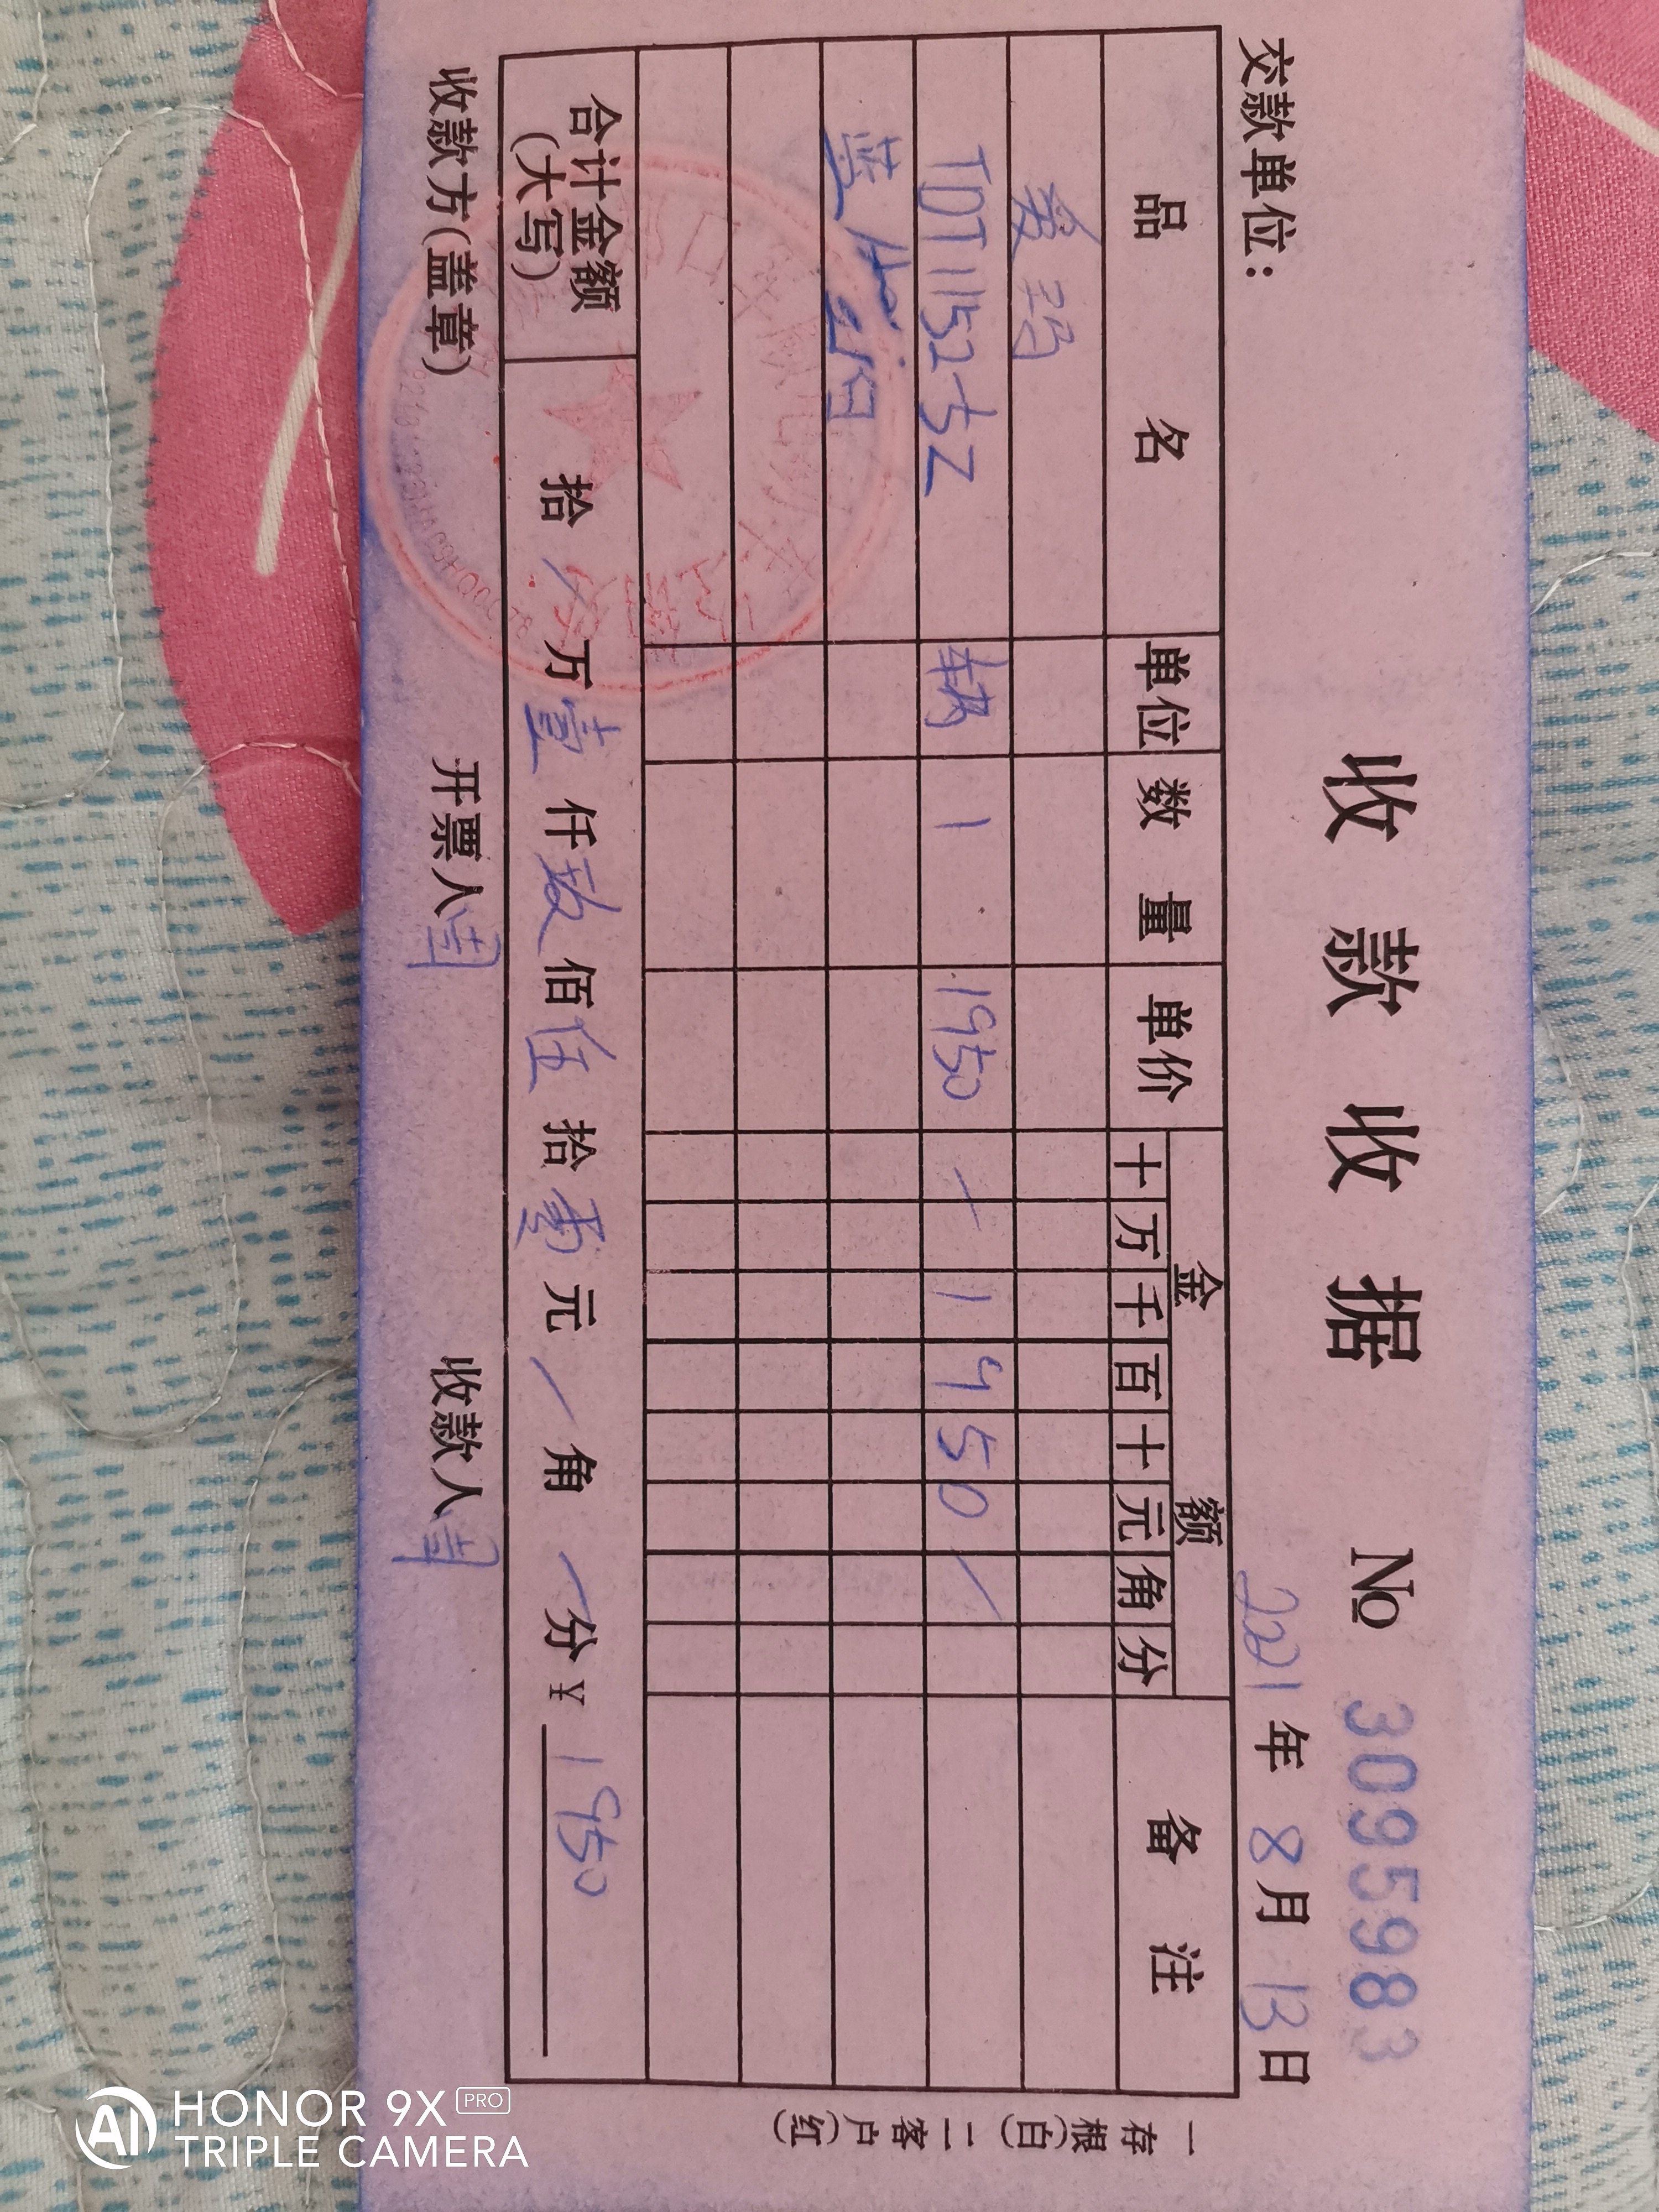 收款收据 № 3095983
交款单位： 2021年8月13日
品名 单位 数量 单价 金额 备注
十 万 千 百 十 元 角 分
爱玛
TDT1152Z 辆 1 1950 1 9 5 0
蓝
合计金额（大写） 拾 万 壹 仟 玖 佰 伍 拾 零 元 角 分 ￥1950
收款方(盖章) 开票人 周 收款人 周
一存根(白) 二客户(红)
HONOR 9X PRO
AI TRIPLE CAMERA